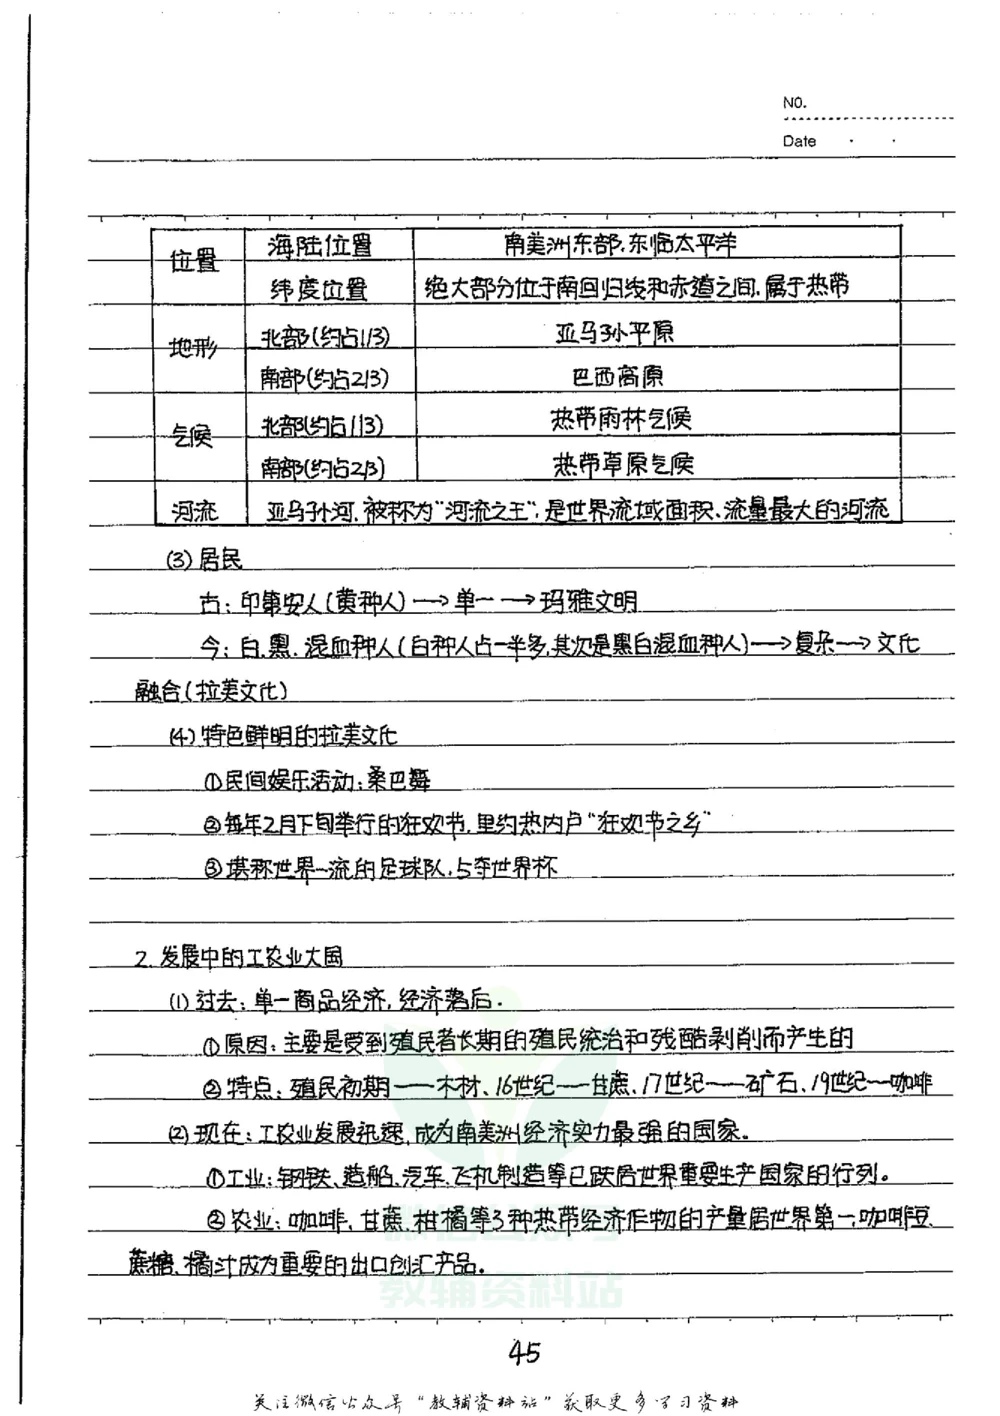 NO.
Date
位置 海陆位置 南美洲东部,东临太平洋
纬度位置 绝大部分位于南回归线和赤道之间,属于热带
地形 北部(约占1/3) 亚马孙平原
南部(约占2/3) 巴西高原
气候 北部(约占1/3) 热带雨林气候
南部(约占2/3) 热带草原气候
河流 亚马孙河,被称为"河流之王",是世界流域面积、流量最大的河流
(3)居民
古:印第安人(黄种人)→单一→玛雅文明
今:白、黑、混血种人(白种人占一半多,其次是黑白混血种人)→复杂→文化
融合(拉美文化)
(4)特色鲜明的拉美文化
①民间娱乐活动:桑巴舞
②每年2月下旬举行的狂欢节,里约热内卢"狂欢节之乡"
③堪称世界一流的足球队,5夺世界杯
2.发展中的工农业大国
(1)过去:单一商品经济,经济落后.
①原因:主要是受到殖民者长期的殖民统治和残酷剥削而产生的
②特点:殖民初期——木材、16世纪——甘蔗、17世纪——矿石、19世纪——咖啡
(2)现在:工农业发展迅速,成为南美洲经济实力最强的国家。
①工业:钢铁、造船、汽车、飞机制造等已跃居世界重要生产国家的行列。
②农业:咖啡、甘蔗、柑橘等3种热带经济作物的产量居世界第一,咖啡豆、
蔗糖、橘汁成为重要的出口创汇产品.
教辅资料站
45
关注微信公众号"教辅资料站"获取更多学习资料